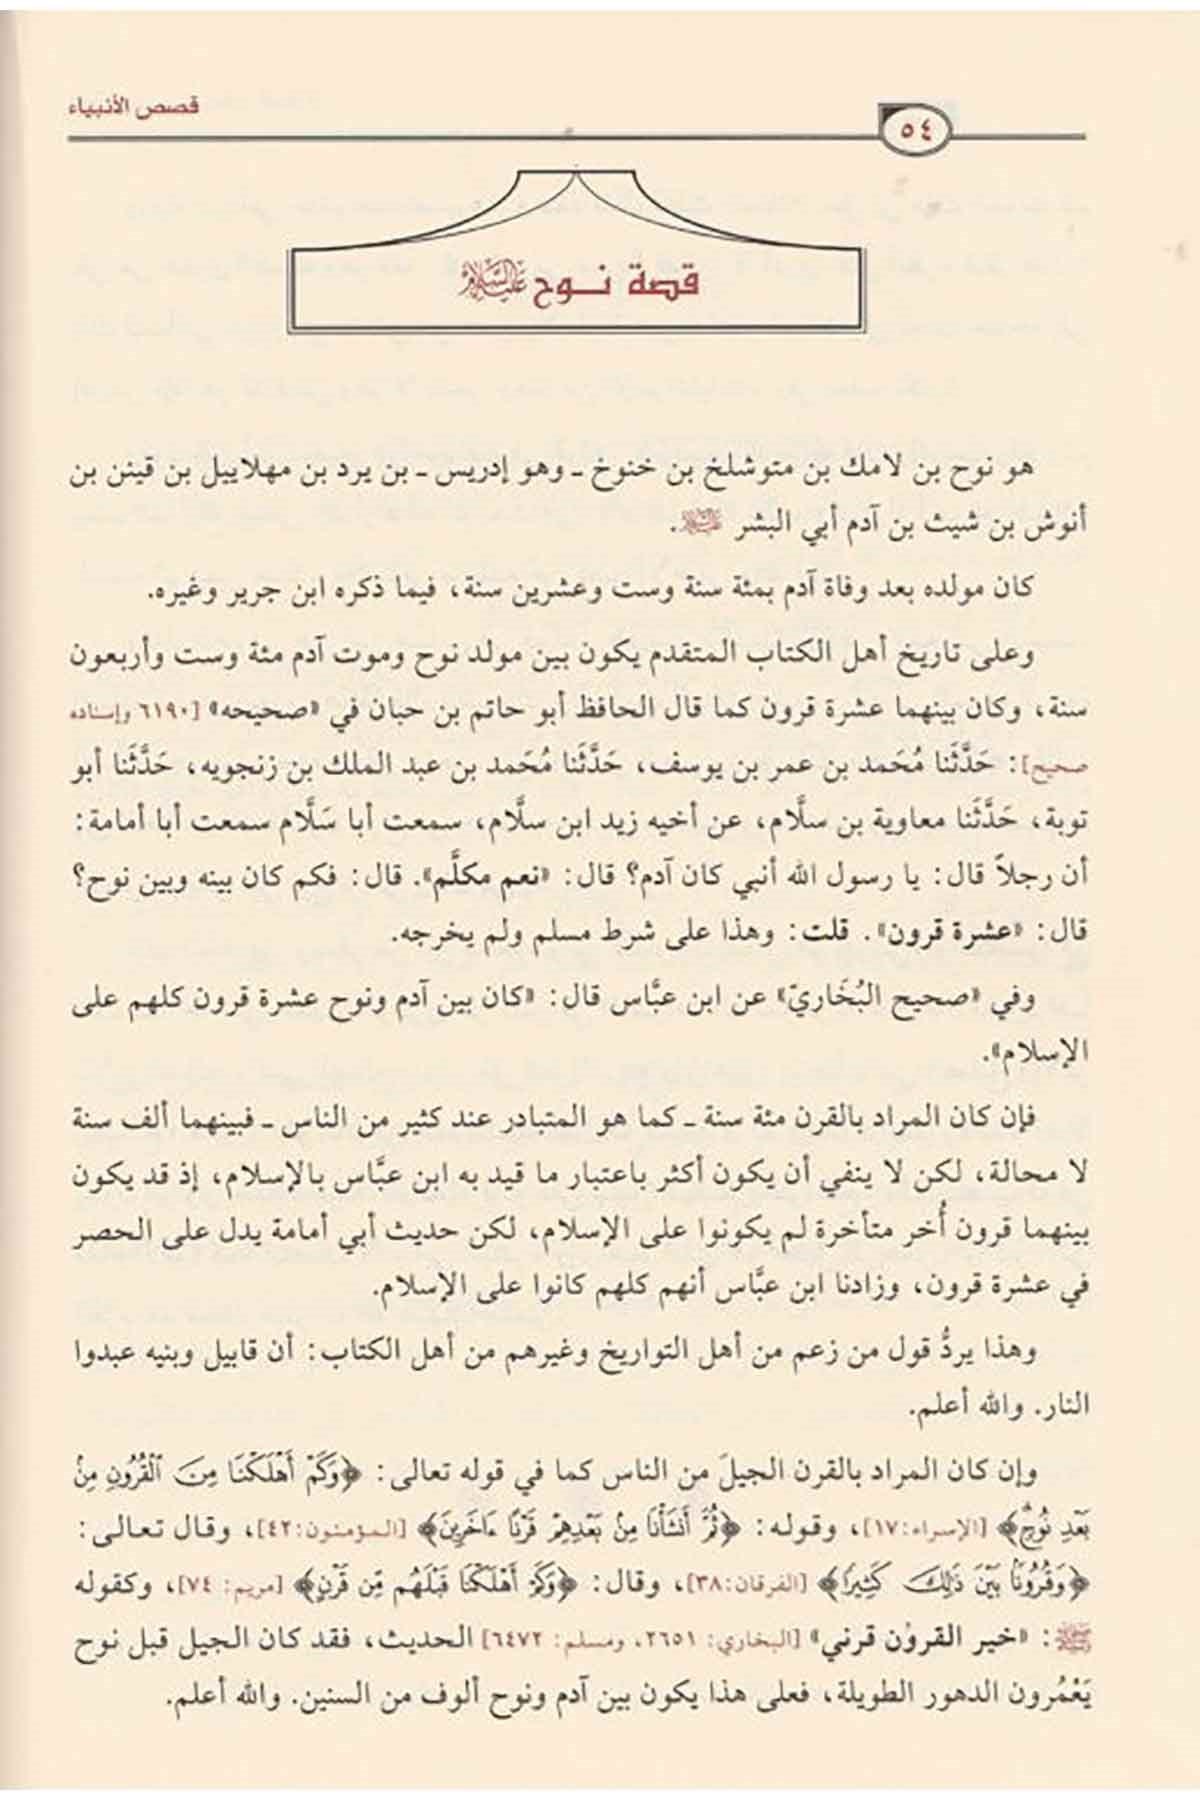 قصص الأنبياء
٥٤
قصة نوح عليه السلام
هو نوح بن لامك بن متوشلخ بن خنوخ ـ وهو إدريس ـ بن يرد بن مهلاييل بن قينن بن
أنوش بن شيث بن آدم أبي البشر عليه السلام.
كان مولده بعد وفاة آدم بمئة سنة وست وعشرين سنة، فيما ذكره ابن جرير وغيره.
وعلى تاريخ أهل الكتاب المتقدم يكون بين مولد نوح وموت آدم مئة وست وأربعون
سنة، وكان بينهما عشرة قرون كما قال الحافظ أبو حاتم بن حبان في «صحيحه» [٦١٩٠ وإسناده
صحيح]: حَدَّثَنا مُحَمد بن عمر بن يوسف، حَدَّثَنا مُحَمد بن عبد الملك بن زنجويه، حَدَّثَنا أبو
توبة، حَدَّثَنا معاوية بن سلَّام، عن أخيه زيد ابن سلَّام، سمعت أبا سَلَّام سمعت أبا أمامة:
أن رجلاً قال: يا رسول الله أنبي كان آدم؟ قال: «نعم مكلَّم». قال: فكم كان بينه وبين نوح؟
قال: «عشرة قرون». قلت: وهذا على شرط مسلم ولم يخرجه.
وفي «صحيح البُخَاريّ» عن ابن عبَّاس قال: «كان بين آدم ونوح عشرة قرون كلهم على
الإسلام».
فإن كان المراد بالقرن مئة سنة ـ كما هو المتبادر عند كثير من الناس ـ فبينهما ألف سنة
لا محالة، لكن لا ينفي أن يكون أكثر باعتبار ما قيد به ابن عبَّاس بالإسلام، إذ قد يكون
بينهما قرون أُخر متأخرة لم يكونوا على الإسلام، لكن حديث أبي أمامة يدل على الحصر
في عشرة قرون، وزادنا ابن عبَّاس أنهم كلهم كانوا على الإسلام.
وهذا يردُّ قول من زعم من أهل التواريخ وغيرهم من أهل الكتاب: أن قابيل وبنيه عبدوا
النار. والله أعلم.
وإن كان المراد بالقرن الجيلَ من الناس كما في قوله تعالى: ﴿وَكَمْ أَهْلَكْنَا مِنَ ٱلْقُرُونِ مِنْ
بَعْدِ نُوحٍ﴾ [الإسراء:١٧]، وقوله: ﴿ثُمَّ أَنشَأْنَا مِنْ بَعْدِهِمْ قَرْنًا ءَاخَرِينَ﴾ [المؤمنون:٤٢]، وقال تعالى:
﴿وَقُرُونًا بَيْنَ ذَٰلِكَ كَثِيرًا﴾ [الفرقان:٣٨]، وقال: ﴿وَكَمْ أَهْلَكْنَا قَبْلَهُم مِّن قَرْنٍ﴾ [مريم: ٧٤]، وكقوله
ﷺ: «خير القرون قرني» [البخاري: ٢٦٥١، ومسلم: ٦٤٧٢] الحديث، فقد كان الجيل قبل نوح
يَعْمُرون الدهور الطويلة، فعلى هذا يكون بين آدم ونوح ألوف من السنين. والله أعلم.